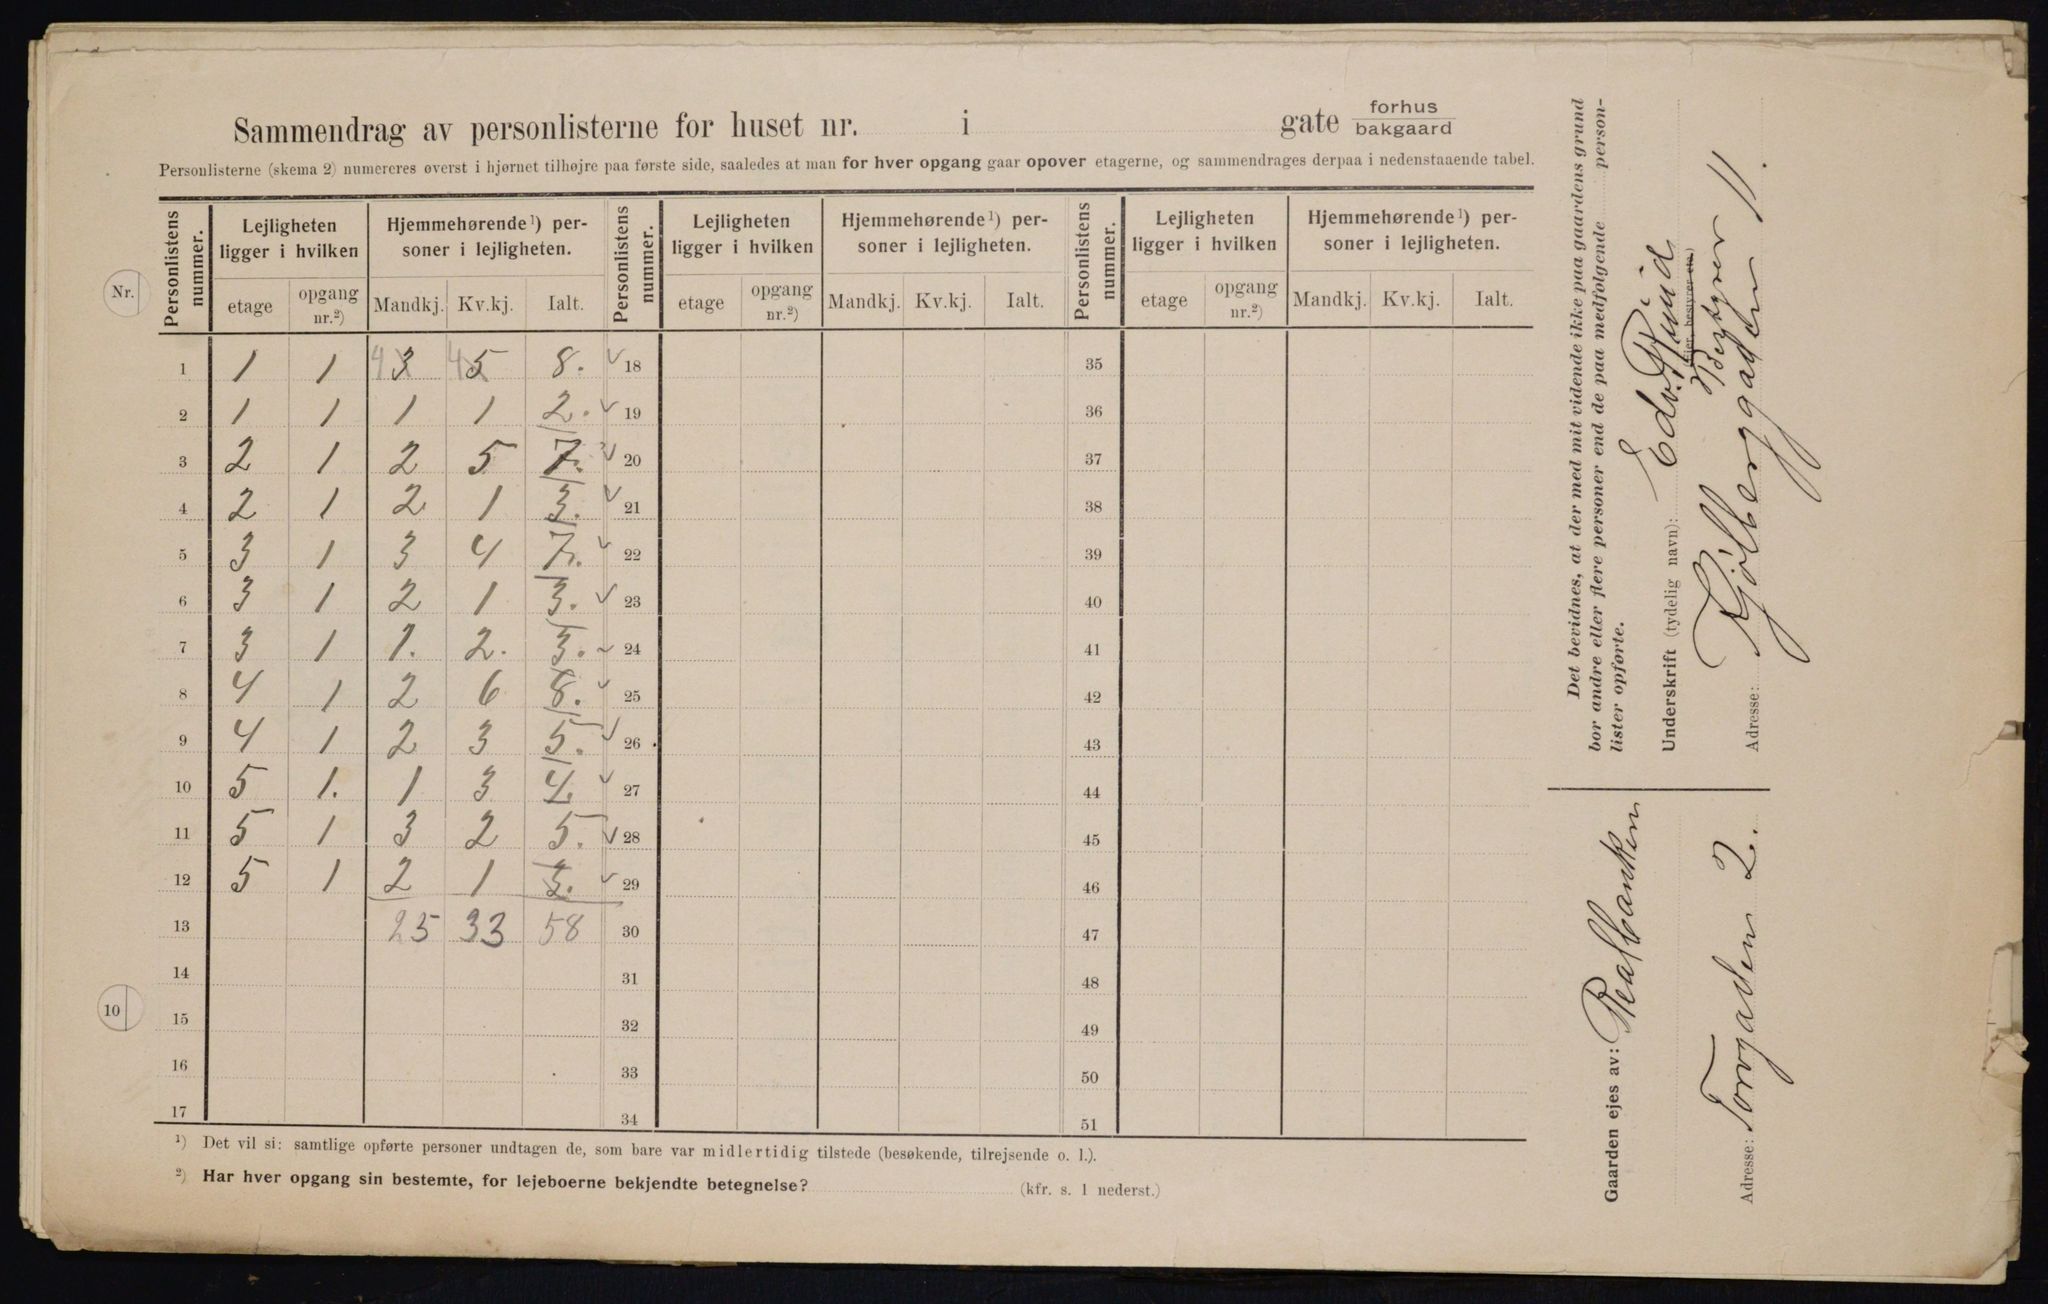 Sammendrag av personlisterne for huset nr. i gate forhus
bakgaard
Personlisterne (skema 2) numereres øverst i hjørnet tilhøjre paa første side, saaledes at man for hver opgang gaar opover etagerne, og sammendrages derpaa i nedenstaaende tabel.
Personlistens nummer. Lejligheten ligger i hvilken Hjemmehørende¹) personer i lejligheten. Personlistens nummer. Lejligheten ligger i hvilken Hjemmehørende¹) personer i lejligheten. Personlistens nummer. Lejligheten ligger i hvilken Hjemmehørende¹) personer i lejligheten.
Nr. etage opgang nr.²) Mandkj. Kv.kj. Ialt. etage opgang nr.²) Mandkj. Kv.kj. Ialt. etage opgang nr.²) Mandkj. Kv.kj. Ialt.
1 1 1 4 3 4 5 8. 18 35
2 1 1 1 1 2. 19 36
3 2 1 2 5 7. 20 37
4 2 1 2 1 3. 21 38
5 3 1 3 4 7. 22 39
6 3 1 2 1 3. 23 40
7 3 1 1. 2. 3. 24 41
8 4 1 2 6 8. 25 42
9 4 1 2 3 5. 26 43
10 5 1. 1 3 4. 27 44
11 5 1 3 2 5. 28 45
12 5 1 2 1 3. 29 46
13 25 33 58 30 47
14 31 48
10 15 32 49
16 33 50
17 34 51
¹) Det vil si: samtlige opførte personer undtagen de, som bare var midlertidig tilstede (besøkende, tilrejsende o. l.).
²) Har hver opgang sin bestemte, for lejeboerne bekjendte betegnelse? (kfr. s. 1 nederst.)
Det bevidnes, at der med mit vidende ikke paa gaardens grund
bor andre eller flere personer end de paa medfølgende personlister opførte.
Underskrift (tydelig navn): Edv.
(Ejer, bestyrer etc.)
Bestyrer
Adresse: Kjølberggaden 11.
Gaarden ejes av: Realbanken
Adresse: Torvgaden 2.